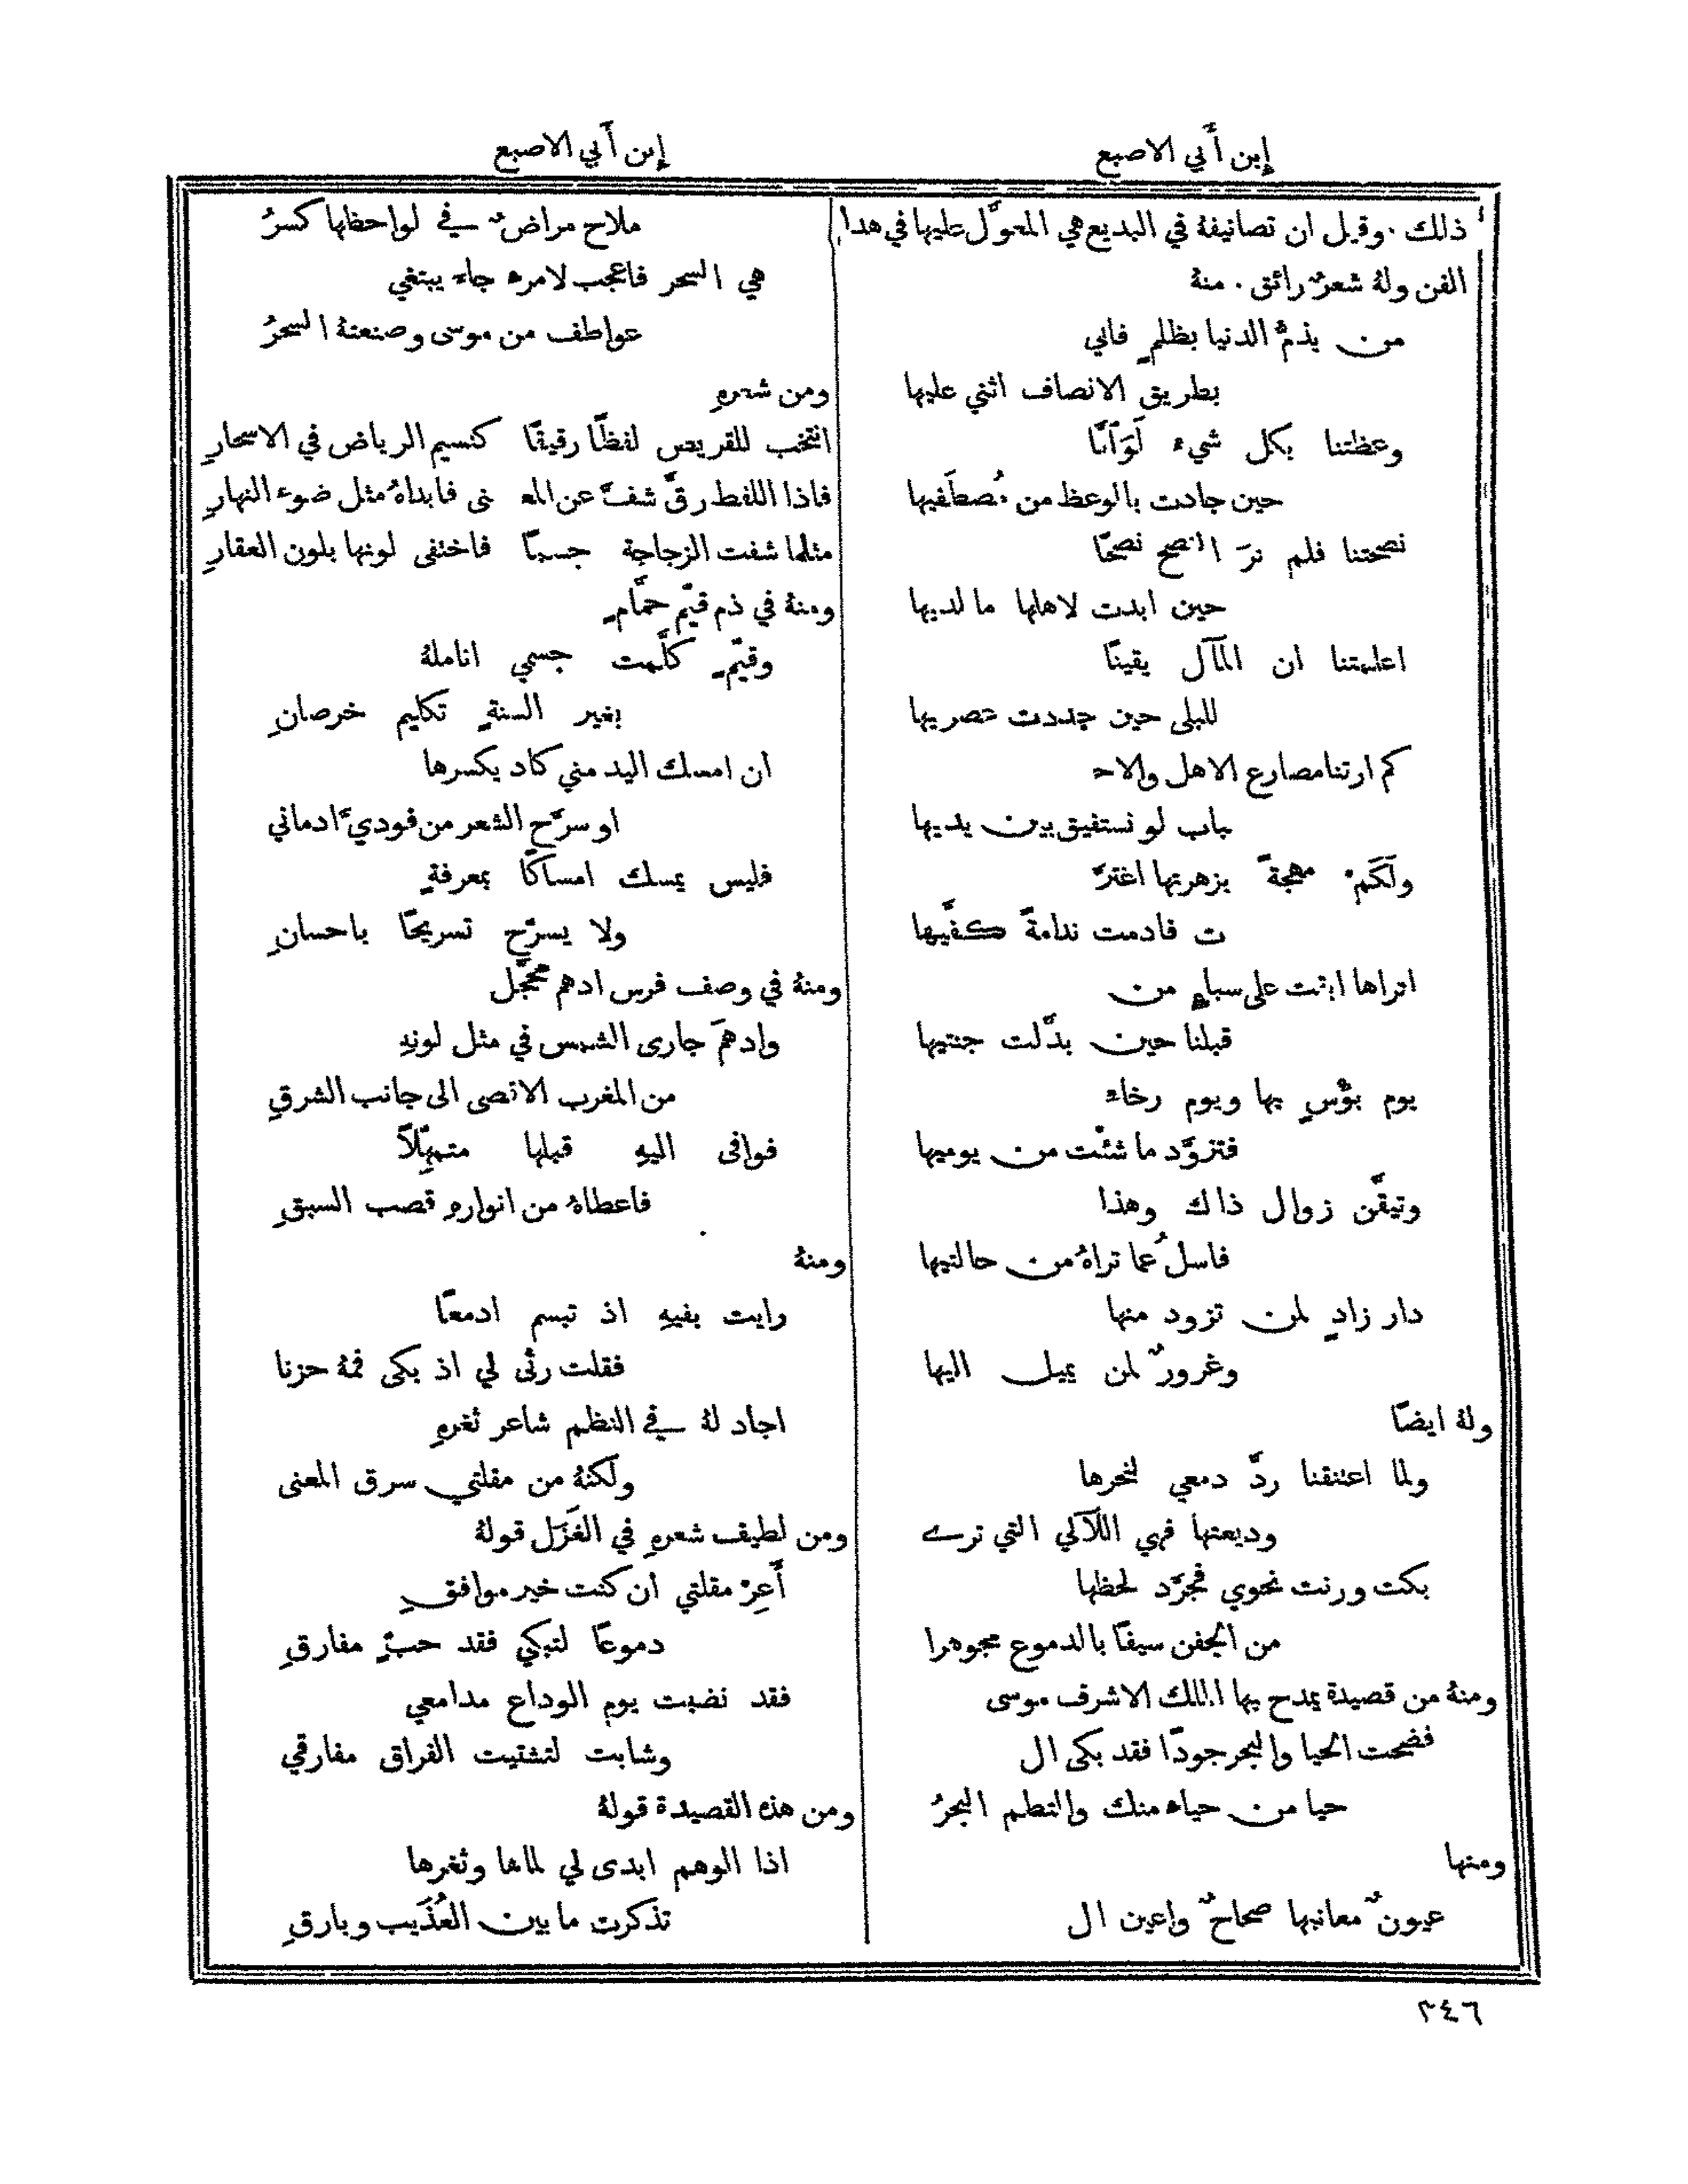 إبن أبي الاصبع
ذلك . وقيل ان تصانيفهُ في البديع هي المعوَّل عليها في هذا
الفن ولهُ شعرٌ رائق . منهُ
من يذمُّ الدنيا بظلمٍ فاني
بطريق الانصاف اثني عليها
وعظتنا بكل شيء لَوَ ٱنَّا
حين جادت بالوعظ من مُصطَفيها
نصحتنا فلم نرَ النصح نصحًا
حين ابدت لاهلها ما لديها
اعلمتنا ان المآل يقينًا
للبلى حين جددت عصريها
كم ارتنا مصارع الاهل والاحـ
ـباب لو نستفيق بين يديها
ولَكَم مهجةً بزهرتها اغترَّ
ت فادمت ندامةً كفَّيها
اتراها ابقت على سباءٍ من
قبلنا حين بدَّلت جنتيها
يوم بؤْسٍ بها ويوم رخاء
فتزوَّد ما شئْت من يوميها
وتيقَّن زوال ذاك وهذا
فاسلُ عما تراهُ من حالتيها
دار زادٍ لمن تزود منها
وغرورٌ لمن يميل اليها
ولهُ ايضًا
ولما اعتنقنا ردَّ دمعي لنحرها
وديعتها فهي اللآلي التي ترے
بكت ورنت نحوي فجرَّد لحظها
من الجفن سيفًا بالدموع مجوهرا
ومنهُ من قصيدة يمدح بها الملك الاشرف موسى
فضحت الحيا والبحر جودًا فقد بكى ال
حيا من حياء منك والتطم البحرُ
ومنها
عيونٌ معانيها صحاحٌ واعين ال
إبن أبي الاصبع
ملاح مراضٌ في لواحظها كسرُ
هي السحر فاعجب لامرء جاء يبتغي
عواطف من موسى وصنعتهُ السحرُ
ومن شعرهِ
انتخب للقريض لفظًا رقيقًا كنسيم الرياض في الاسحارِ
فاذا اللفظ رقَّ شفَّ عن المعـ ـنى فابداهُ مثل ضوء النهارِ
مثلما شفت الزجاجة جسمًا فاختفى لونها بلون العقارِ
ومنهُ في ذم قيّم حمَّامٍ
وقيّمٍ كلَّمت جسمي اناملهُ
بغير السنةٍ تكليم خرصانِ
ان امسك اليد مني كاد يكسرها
او سرَّح الشعر من فوديَّ ادماني
فليس يمسك امساكًا بمعرفةٍ
ولا يسرّح تسريحًا باحسانِ
ومنهُ في وصف فرس ادهم محجَّل
وادهمَ جارى الشمس في مثل لونهِ
من المغرب الاقصى الى جانب الشرقِ
فوافى اليهِ قبلها متمهّلًا
فاعطاهُ من انوارهِ قصب السبقِ
ومنهُ
رايت بفيهِ اذ تبسم ادمعًا
فقلت رثى لي اذ بكى فمهُ حزنا
اجاد لهُ في النظم شاعر ثغرهِ
ولكنهُ من مقلتي سرق المعنى
ومن لطيف شعرهِ في الغَزَل قولهُ
أَعِرْ مقلتي ان كنت خير موافقٍ
دموعًا لتبكي فقد حبٍّ مفارقِ
فقد نضبت يوم الوداع مدامعي
وشابت لتشتيت الفراق مفارقي
ومن هذه القصيدة قولهُ
اذا الوهم ابدى لي لماها وثغرها
تذكرت ما بين العُذَيب وبارقِ
٣٤٦